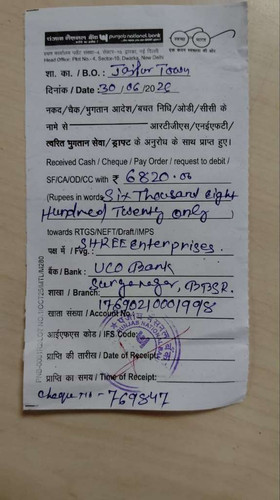 पंजाब नैशनल बैंक punjab national bank
Head Office: Plot No.: 4, Sector-10, Dwarka, New Delhi
शा. का. / B.O.: Jaipur Town
दिनांक / Date : 30/06/2020
नकद/चेक/भुगतान आदेश/बचत निधि/ओडी/सीसी के
नामे से आरटीजीएस/एनईएफटी/
त्वरित भुगतान सेवा/ड्राफ्ट के अनुरोध के साथ प्राप्त हुए।
Received Cash / Cheque / Pay Order / request to debit /
SF/CA/OD/CC with ₹ 6820.00
(Rupees in words Six Thousand eight
Hundred Twenty only)
towards RTGS/NEFT/Draft/IMPS
पक्ष में / Fvg.: SHREE Enterprises.
बैंक / Bank : UCO Bank
शाखा / Branch:
खाता संख्या / Account No.: 17690210001998
आईएफएस कोड / IFS Code:
प्राप्ति की तारीख / Date of Receipt:
प्राप्ति का समय / Time of Receipt:
cheque no - 769847